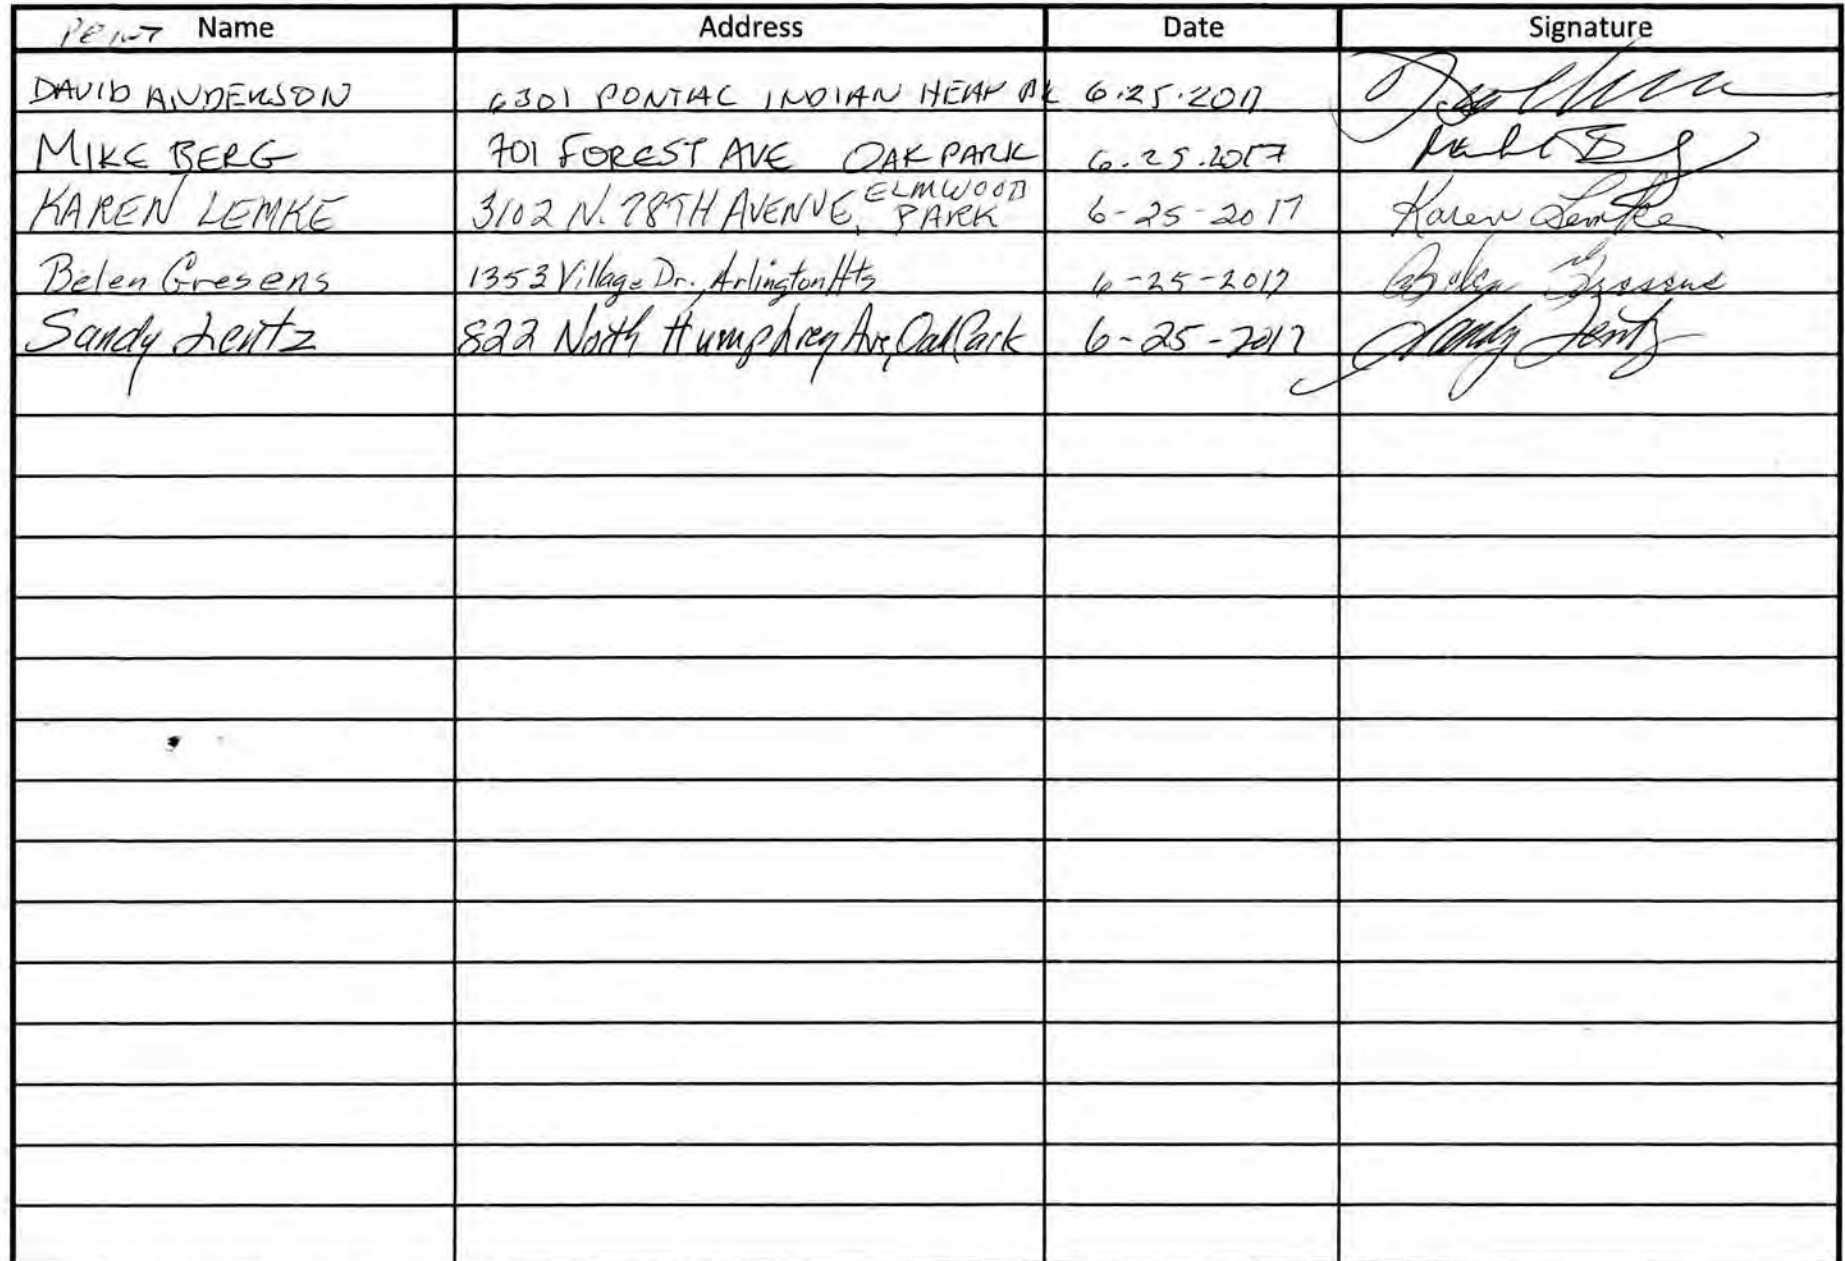 Print Name Address Date Signature
DAVID ANDERSON 6301 PONTIAC INDIAN HEAD PK 6.25.2017
MIKE BERG 701 FOREST AVE OAK PARK 6.25.2017
KAREN LEMKE 3102 N. 78TH AVENUE, ELMWOOD PARK 6-25-2017 Karen Lemke
Belen Gresens 1353 Village Dr., Arlington Hts 6-25-2017 Belen Gresens
Sandy Lentz 822 North Humphrey Ave, Oak Park 6-25-2017 Sandy Lentz